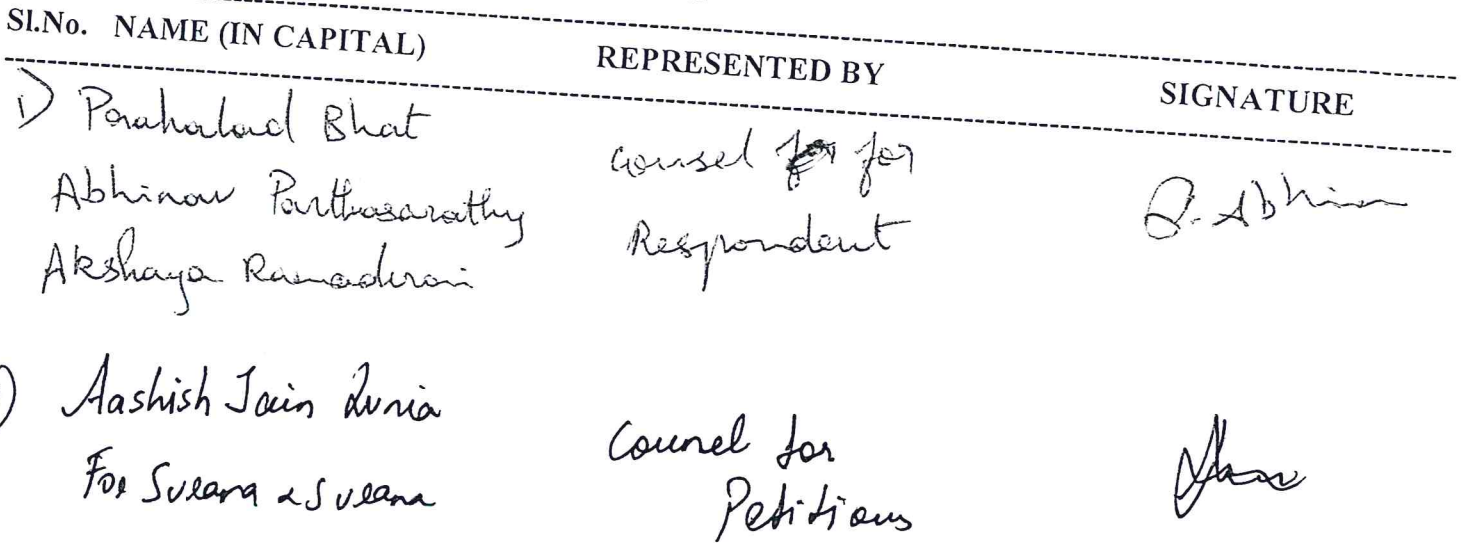 Sl.No. NAME (IN CAPITAL) REPRESENTED BY SIGNATURE
1) Parahalad Bhat
Abhinav Parthasarathy
Akshaya Ramadurai
Counsel for for
Respondent
Abhin
) Aashish Jain Lunia
For Surana & Surana
Counsel for
Petitions